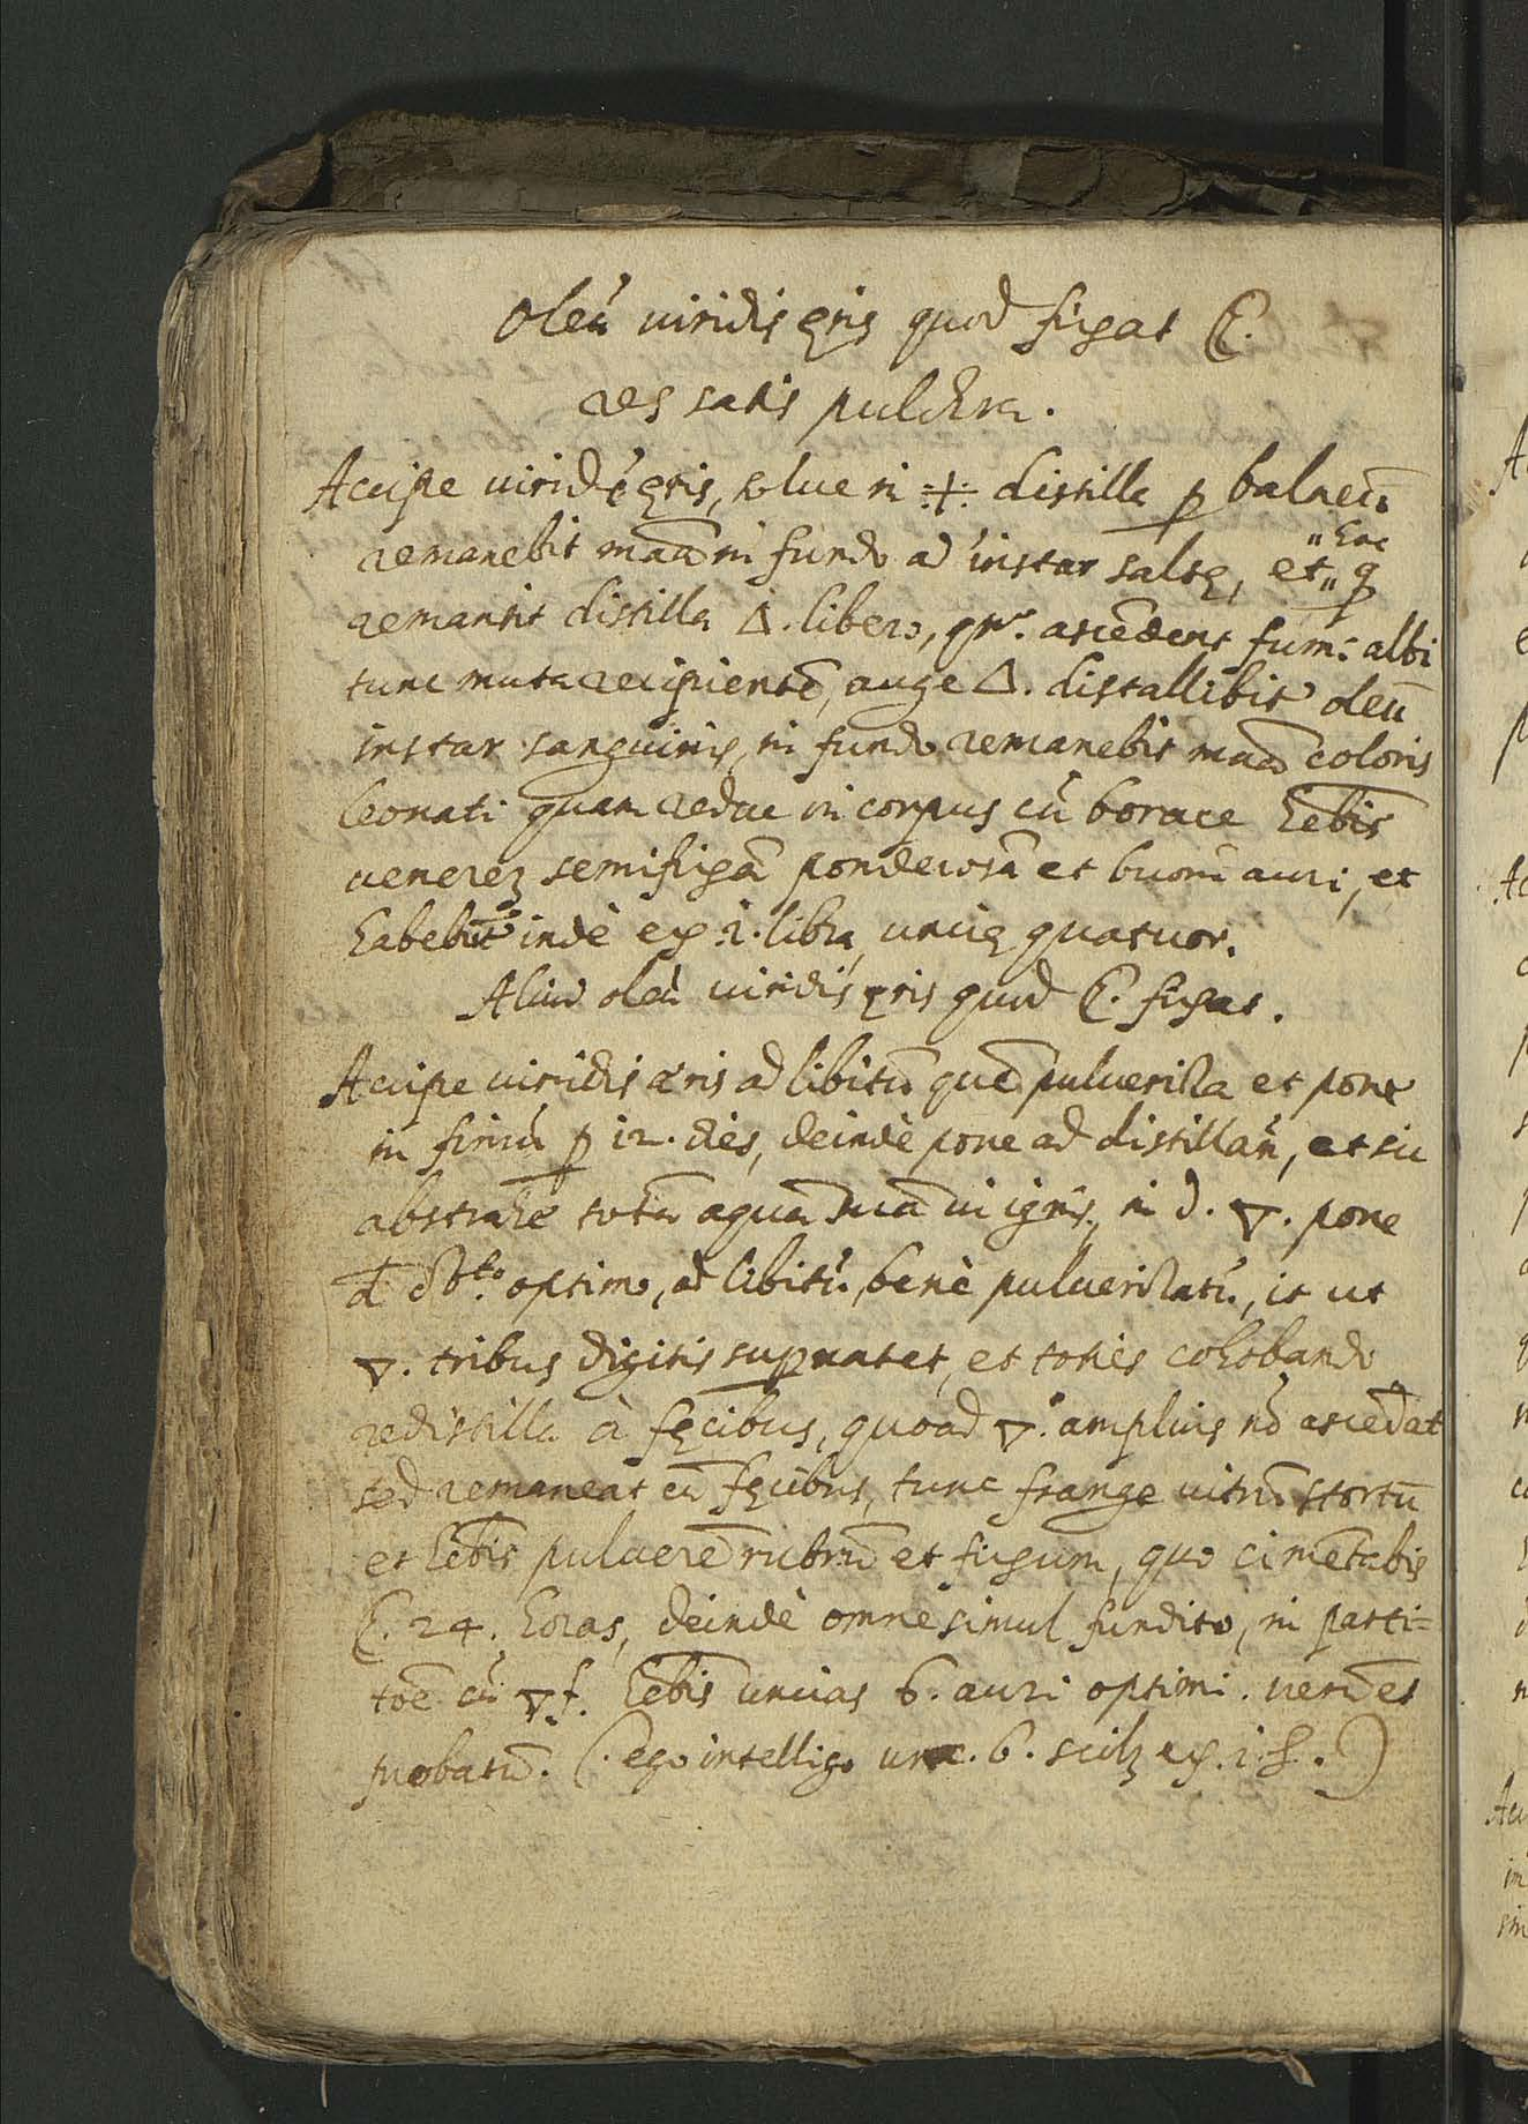 Oleú uiridis ęris quod figat ☾.
res satis pulchra.
Accipe uiridé ęris, solue in .+. distilla ꝑ balneū
remanebit maā in fundo ad instar salsę, et "hoc" q̨
remansit distilla △. libero, qn̄. ascēdent fumi albi
tunc muta recipientē, auge △. distallibit oleū
instar sanguinis, in fundo remanebit maā coloris
leonati quam reduc in corpus cū borace hēbis
uenerēz semifixā ponderosā et buoni auri, et
habebit indè ex 1. libra, uncię quatuor.
Aliud oleū uiridis ęris quod ☾. figat.
Accipe uiridis æris ad libitū quē puluerisa et pone
in fimū ꝑ 12. dies, deindè pone ad distillan̄, et sic
abstrahe totā aquā suā ui ignis, in d. ▽. pone
optimo, ad libitū, benè puluerisatū, it ut
▽. tribus digitis suꝑnatet, et toties cohobando
redistilla à fęcibus, quoad ▽. amplius nō ascēdat
sed remaneat cū fęcibus, tunc frange uitrū stortū
et hēbis puluerē rubrū et fixum, quo cimētabis
☾. 24. horas, deindè omne simul fundito, in parti=
toē cū ▽.f. hēbis uncias 6. auri optimi. uerū et
probatū. (. ego intelligo unc. 6. scilz ex. 1. .)